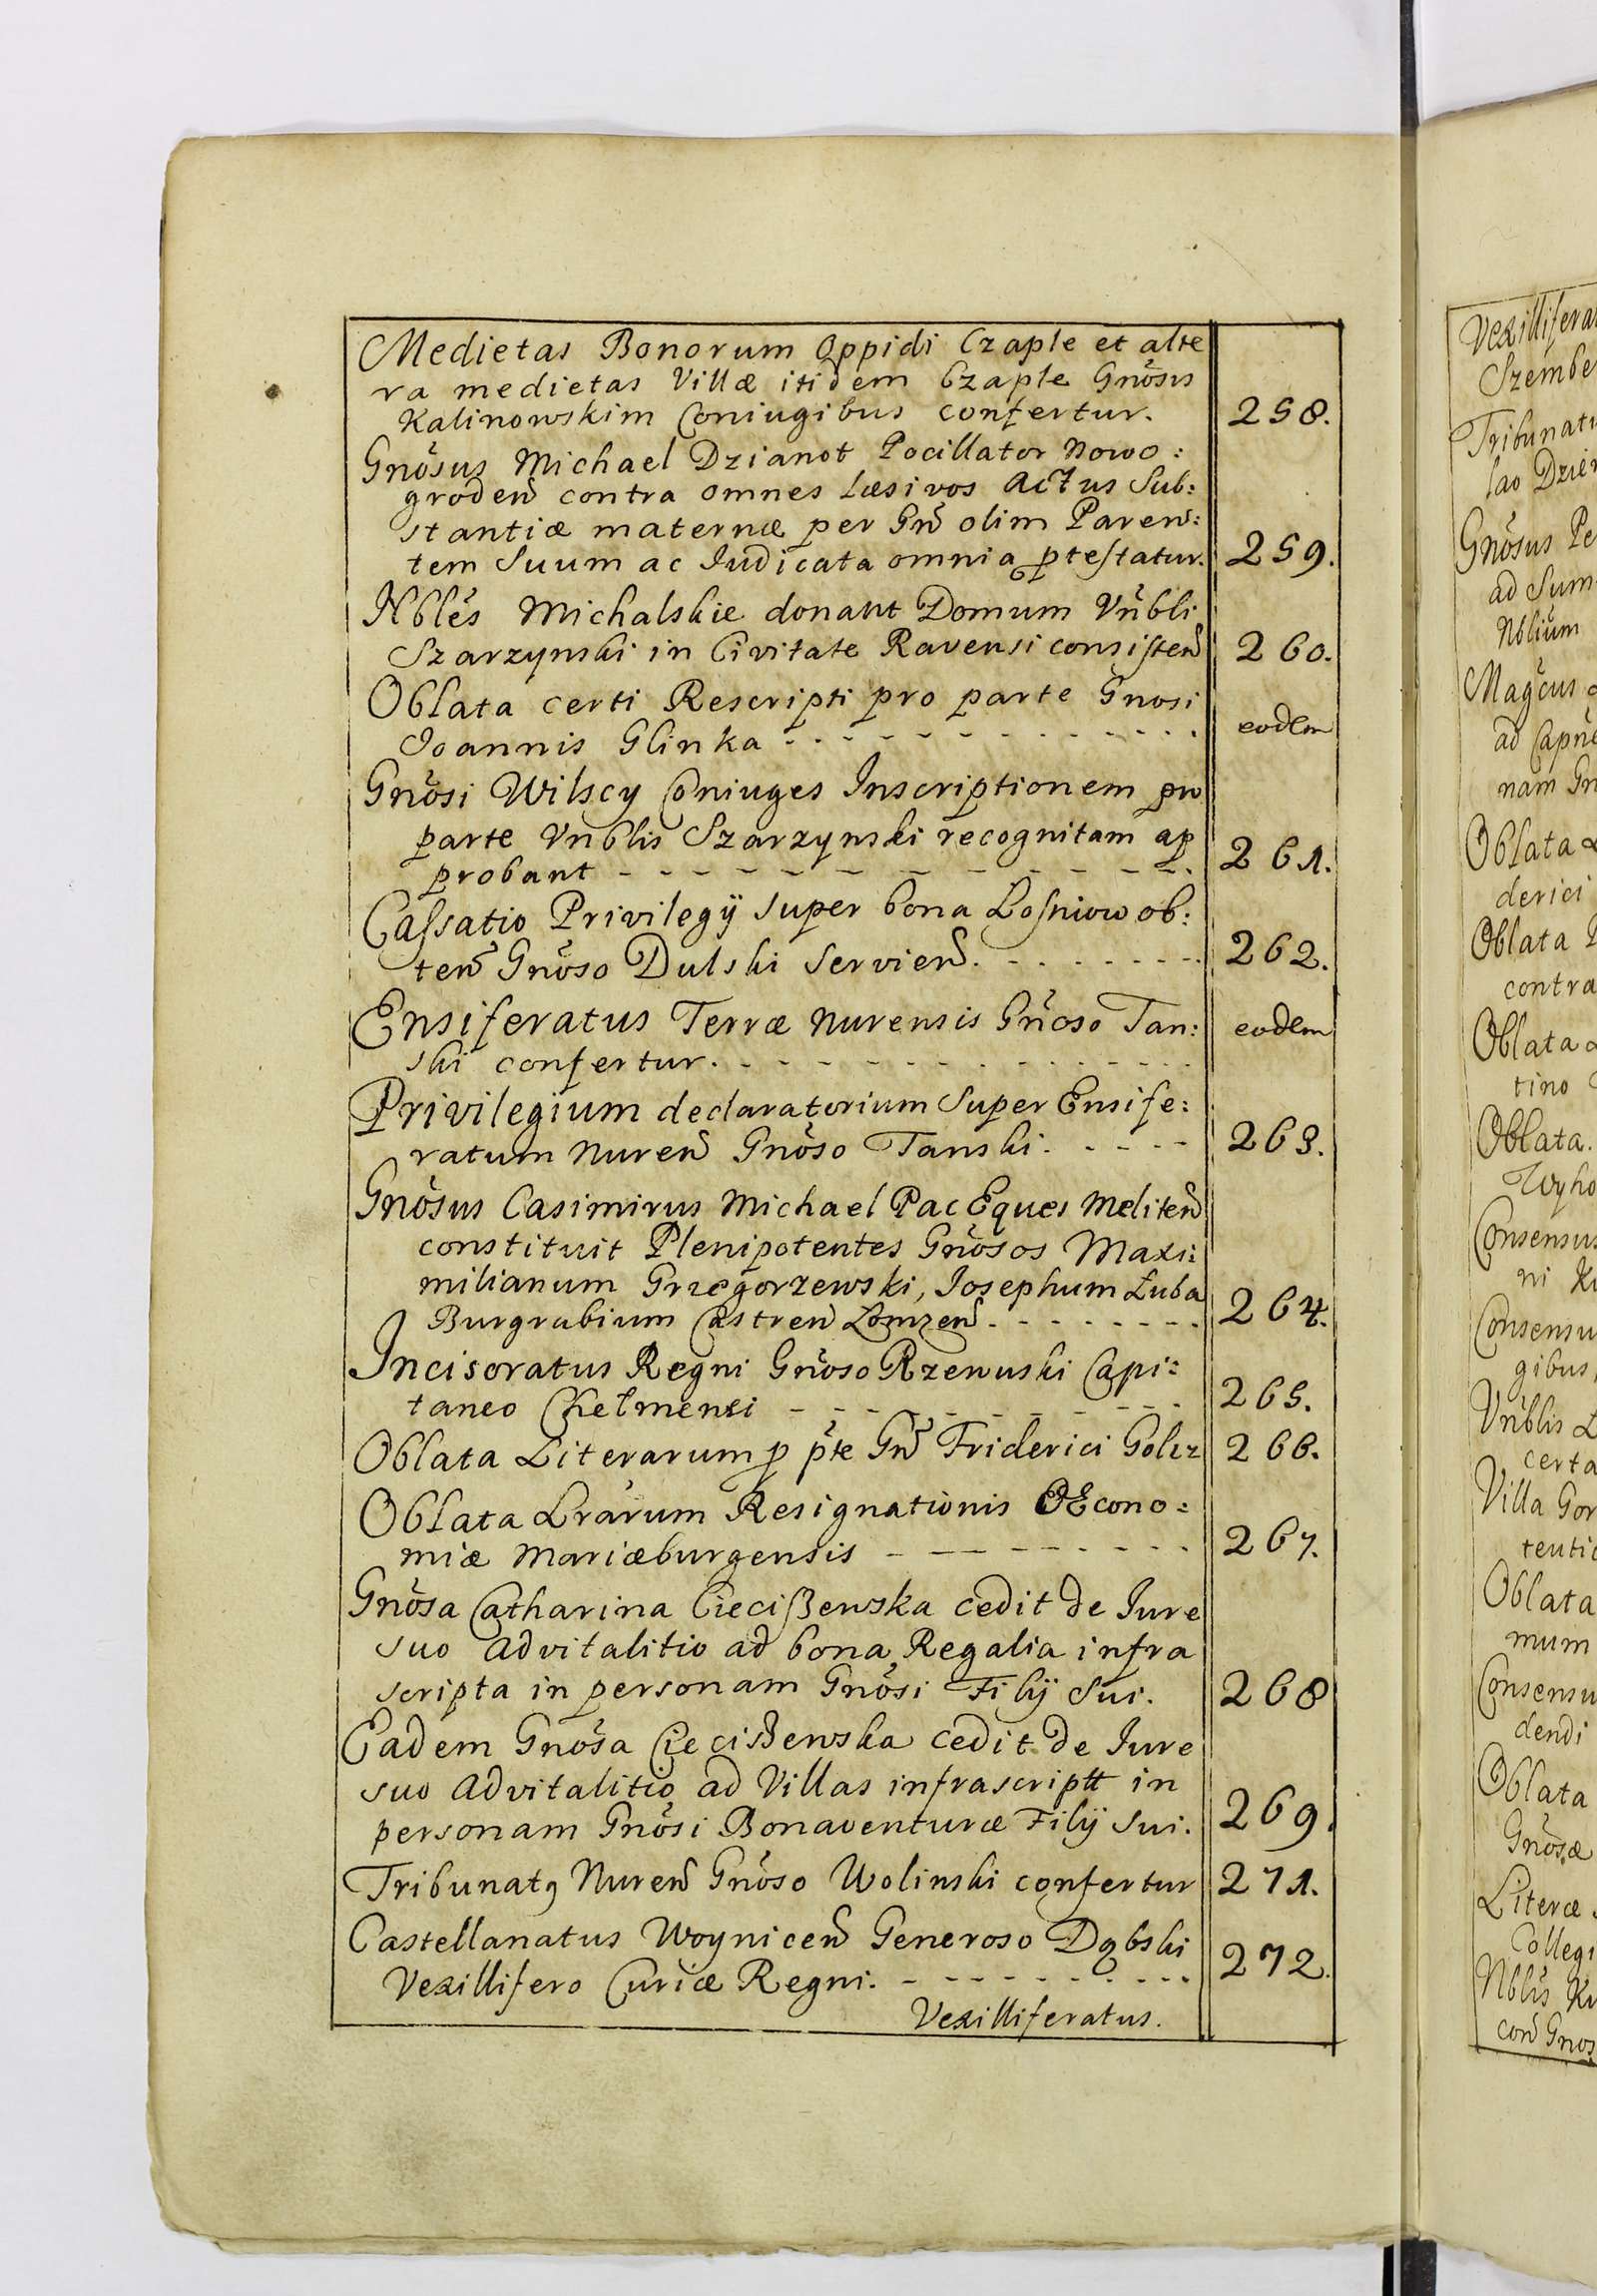 Medietas Bonorum Oppidi Czaple et alte
ra medietas Villæ itidem Czaple Gnõsis
Kalinowskim Coniugibus confertur. 258.
Gnõsus Michael Dzianot Pocillator Nowo:
groden̄ contra omnes læsivos Actus Sub:
stantiæ maternæ per Gn̄ olim Paren:
tem Suum ac Iudicata omnia ꝓtestatur. 259.
Nblẽs Michalskie donant Domum Vñbli
Szarzynski in Civitate Ravensi consisten̄ 260.
Oblata certi Rescripti pro parte Gnosi
Joannis Glinka eodem
Gnõsi Wilscy Coniuges Inscriptionem pro
parte Vnblis Szarzynski recognitam ap
probant 261.
Cassatio Privilegÿ super bona Łosniow ob:
ten̄ Gnõso Dulski servien̄. 262.
Ensiferatus Terræ Nurensis Gñoso Tan:
ski confertur. eodem
Privilegium declaratorium Super Ensife:
ratum Nuren̄ Gnõso Tanski. 263.
Gnõsus Casimirus Michael Pac Eques Meliten̄
constituit Plenipotentes Gnõsos Maxi:
milianum Grzegorzewski, Josephum Łuba
Burgrabium Castren̄ Łomzen̄. 264.
Incisoratus Regni Gñoso Rzewuski Capi:
taneo Chełmensi 265.
Oblata Literarum ꝑ pt̃e Gn̄ Friderici Goltz 266.
Oblata Lrãrum Resignationis OEcono:
miæ Mariæburgensis 267.
Gnõsa Catharina Ciecißewska cedit de Jure
suo advitalitio ad bona Regalia infra
scripta in personam Gnõsi Filÿ Sui. 268
Eadem Gnõsa Ciecißewska cedit de Jure
suo Advitalitio ad Villas infrascriptt in
personam Gnõsi Bonaventuræ Filÿ Sui. 269.
Tribunatꝯ Nuren̄ Gnõso Wolinski confertur 271.
Castellanatus Woynicen̄ Generoso Dąbski
Vexillifero Curiæ Regni. 272.
Vexilliferatus.
Vexillifera
Szembe
Tribunatu
lao Dzier
Gnõsus Pe
ad Sum
Nblium
Magcus
ad Capñe
nam Gn
Oblata
derici
Oblata
contra
Oblata
tino
Oblata.
Wyho
Consensus
ni
Consensu
gibus
Vñblis
certa
Villa Gor
tentic
Oblata
mum
Consensu
dendi
Oblata
Gnõsæ
Literæ
Collegi
Nblis
con̄ Gnos